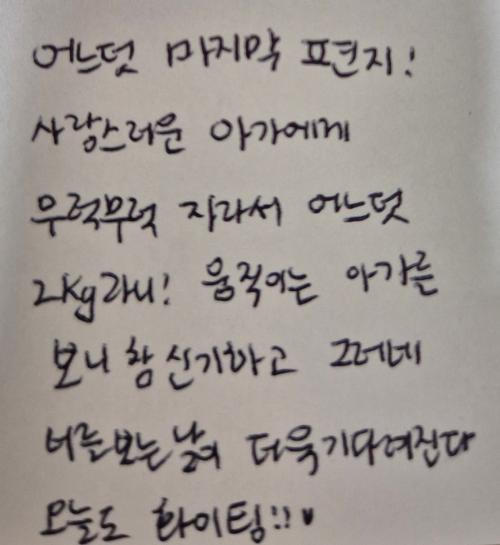 어느덧 마지막 편지!
사랑스러운 아가에게
무럭무럭 자라서 어느덧
2kg라니! 움직이는 아가를
보니 참 신기하고
너를 보는 날이 더욱 기다려진다
오늘도 화이팅!! ♥